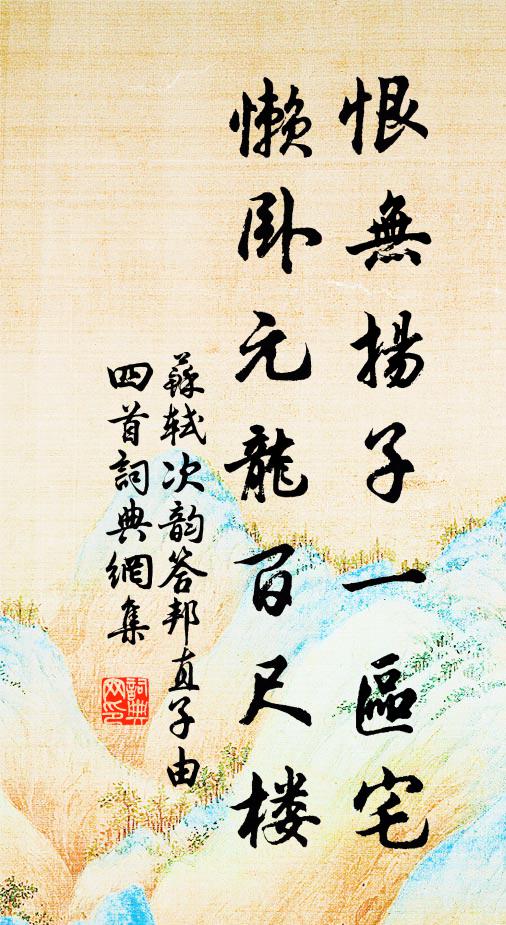 恨無揚子一區宅
懶卧元龍百尺楼
蘇軾次韵答邦直子由
四首詞典網集
詞典
网印